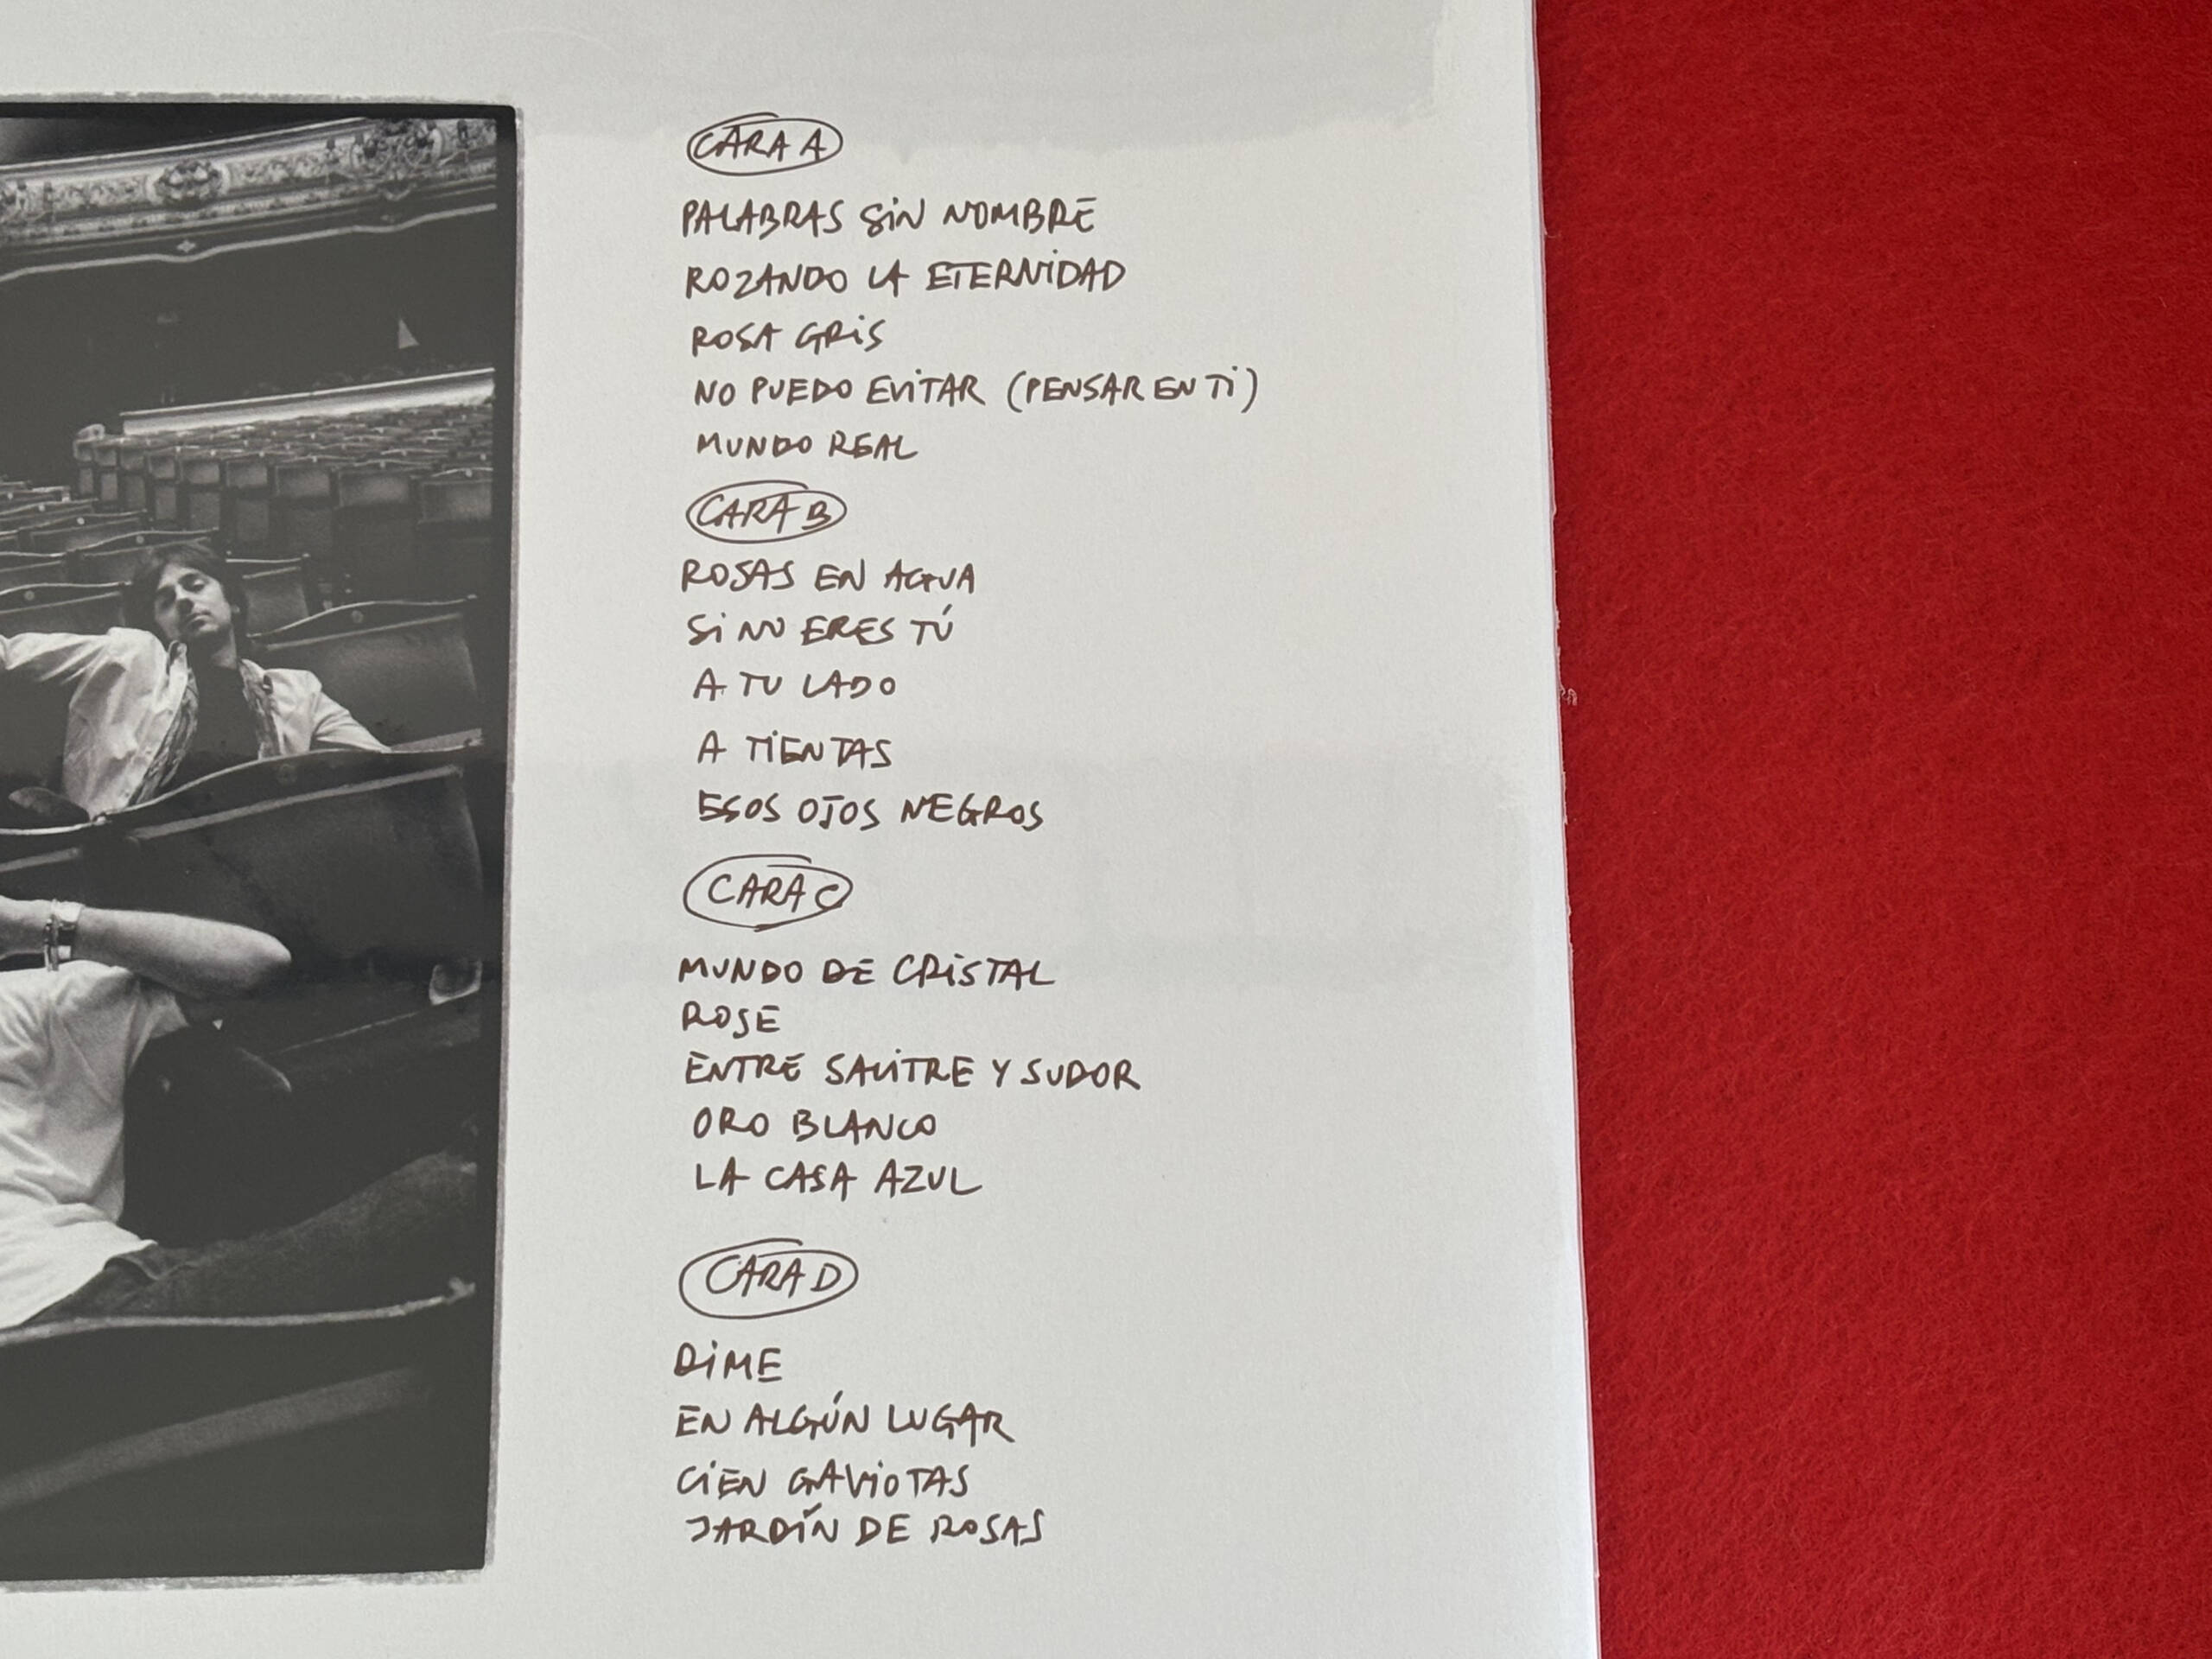 CARA A
PALABRAS SiN NOMBRE
ROZANDO LA ETERNiDAD
ROSA GRiS
NO PUEDO EViTAR (PENSAR EN Ti)
MUNDO REAL
CARA B
ROSAS EN AGUA
Si NO ERES TÚ
A TU LADO
A TiENTAS
ESOS OJOS NEGROS
CARA C
MUNDO DE CRiSTAL
ROSE
ENTRE SALiTRE Y SUDOR
ORO BLANCO
LA CASA AZUL
CARA D
DiME
EN ALGÚN LUGAR
CiEN GAViOTAS
JARDÍN DE ROSAS